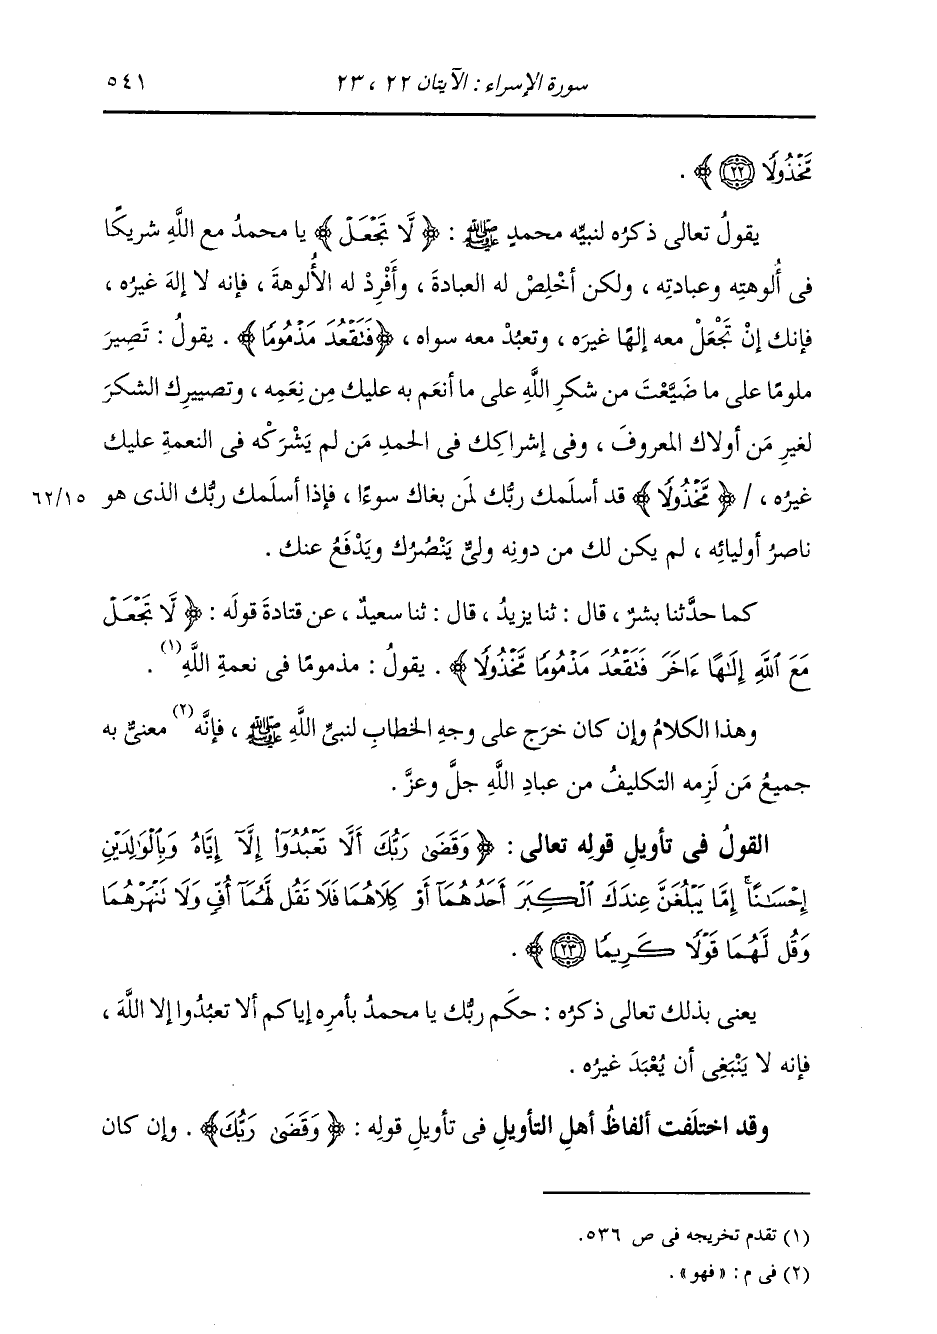 سورة الإسراء : الآيتان ٢٢ ، ٢٣ ٥٤١
مَّخْذُولًا ﴿٢٢﴾ ﴾ .
يقولُ تعالى ذكرُه لنبيِّه محمدٍ ﷺ : ﴿ لَّا تَجْعَلْ ﴾ يا محمدُ مع اللَّهِ شريكًا
فى أُلوهتِه وعبادتِه ، ولكن أَخْلِصْ له العبادةَ ، وأَفْرِدْ له الأُلوهةَ ، فإنه لا إلهَ غيرُه ،
فإنك إنْ تَجْعَلْ معه إلهًا غيرَه ، وتعبُدْ معه سواه ، ﴿فَنَقْعُدَ مَذْمُومًا﴾ . يقولُ : تَصِيرَ
ملومًا على ما ضَيَّعْتَ من شكرِ اللَّهِ على ما أنعَم به عليك مِن نِعَمِه ، وتصييرِك الشكرَ
لغيرِ مَن أولاك المعروفَ ، وفى إشراكِك فى الحمدِ مَن لم يَشْرَكْه فى النعمةِ عليك
غيرُه ، / ﴿ مَّخْذُولًا ﴾ قد أسلَمك ربُّك لمَن بغاك سوءًا ، فإذا أسلَمك ربُّك الذى هو ٦٢/١٥
ناصرُ أوليائِه ، لم يكن لك من دونِه ولىٌّ يَنْصُرُك ويَدْفَعُ عنك .
كما حدَّثنا بشرٌ ، قال : ثنا يزيدُ ، قال : ثنا سعيدٌ ، عن قتادةَ قولَه : ﴿ لَّا تَجْعَلْ
مَعَ ٱللَّهِ إِلَٰهًا ءَاخَرَ فَنَقْعُدَ مَذْمُومًا مَّخْذُولًا ﴾ . يقولُ : مذمومًا فى نعمةِ اللَّهِ(١) .
وهذا الكلامُ وإن كان خرَج على وجهِ الخطابِ لنبىِّ اللَّهِ ﷺ ، فإنَّه(٢) معنىٌّ به
جميعُ مَن لَزِمه التكليفُ من عبادِ اللَّهِ جلَّ وعزَّ .
القولُ فى تأويلِ قولِه تعالى : ﴿ وَقَضَىٰ رَبُّكَ أَلَّا تَعْبُدُوٓا۟ إِلَّآ إِيَّاهُ وَبِٱلْوَٰلِدَيْنِ
إِحْسَٰنًا ۚ إِمَّا يَبْلُغَنَّ عِندَكَ ٱلْكِبَرَ أَحَدُهُمَآ أَوْ كِلَاهُمَا فَلَا تَقُل لَّهُمَآ أُفٍّ وَلَا تَنْهَرْهُمَا
وَقُل لَّهُمَا قَوْلًا كَرِيمًا ﴿٢٣﴾ ﴾ .
يعنى بذلك تعالى ذكرُه : حكَم ربُّك يا محمدُ بأمرِه إياكم ألا تعبُدُوا إلا اللَّهَ ،
فإنه لا يَنْبَغِى أن يُعْبَدَ غيرُه .
وقد اختلَفت ألفاظُ أهلِ التأويلِ فى تأويلِ قولِه : ﴿ وَقَضَىٰ رَبُّكَ﴾ . وإن كان
(١) تقدم تخريجه فى ص ٥٣٦.
(٢) فى م : « فهو » .